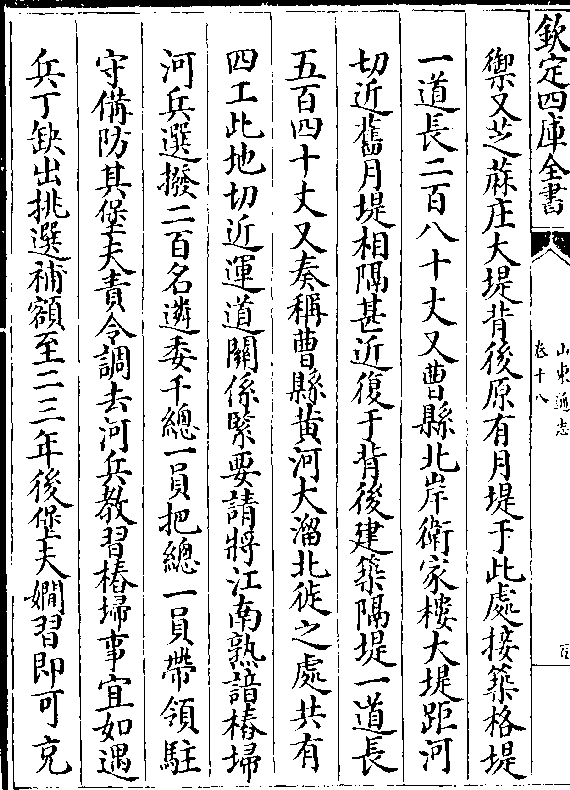 欽定四庫全書
山東通志
卷十八
禦又芝蔴庄大堤背後原有月堤于此處接築格堤
一道長二百八十丈又曹縣北岸衛家樓大堤距河
切近舊月堤相隔甚近復于背後建築隔堤一道長
五百四十丈又奏稱曹縣黄河大溜北徙之處共有
四工此地切近運道關係緊要請將江南熟諳樁埽
河兵選撥二百名遴委千總一員把總一員帶領駐
守備防其堡夫責令調去河兵教習樁埽事宜如遇
兵丁缺出挑選補額至二三年後堡夫嫺習即可充